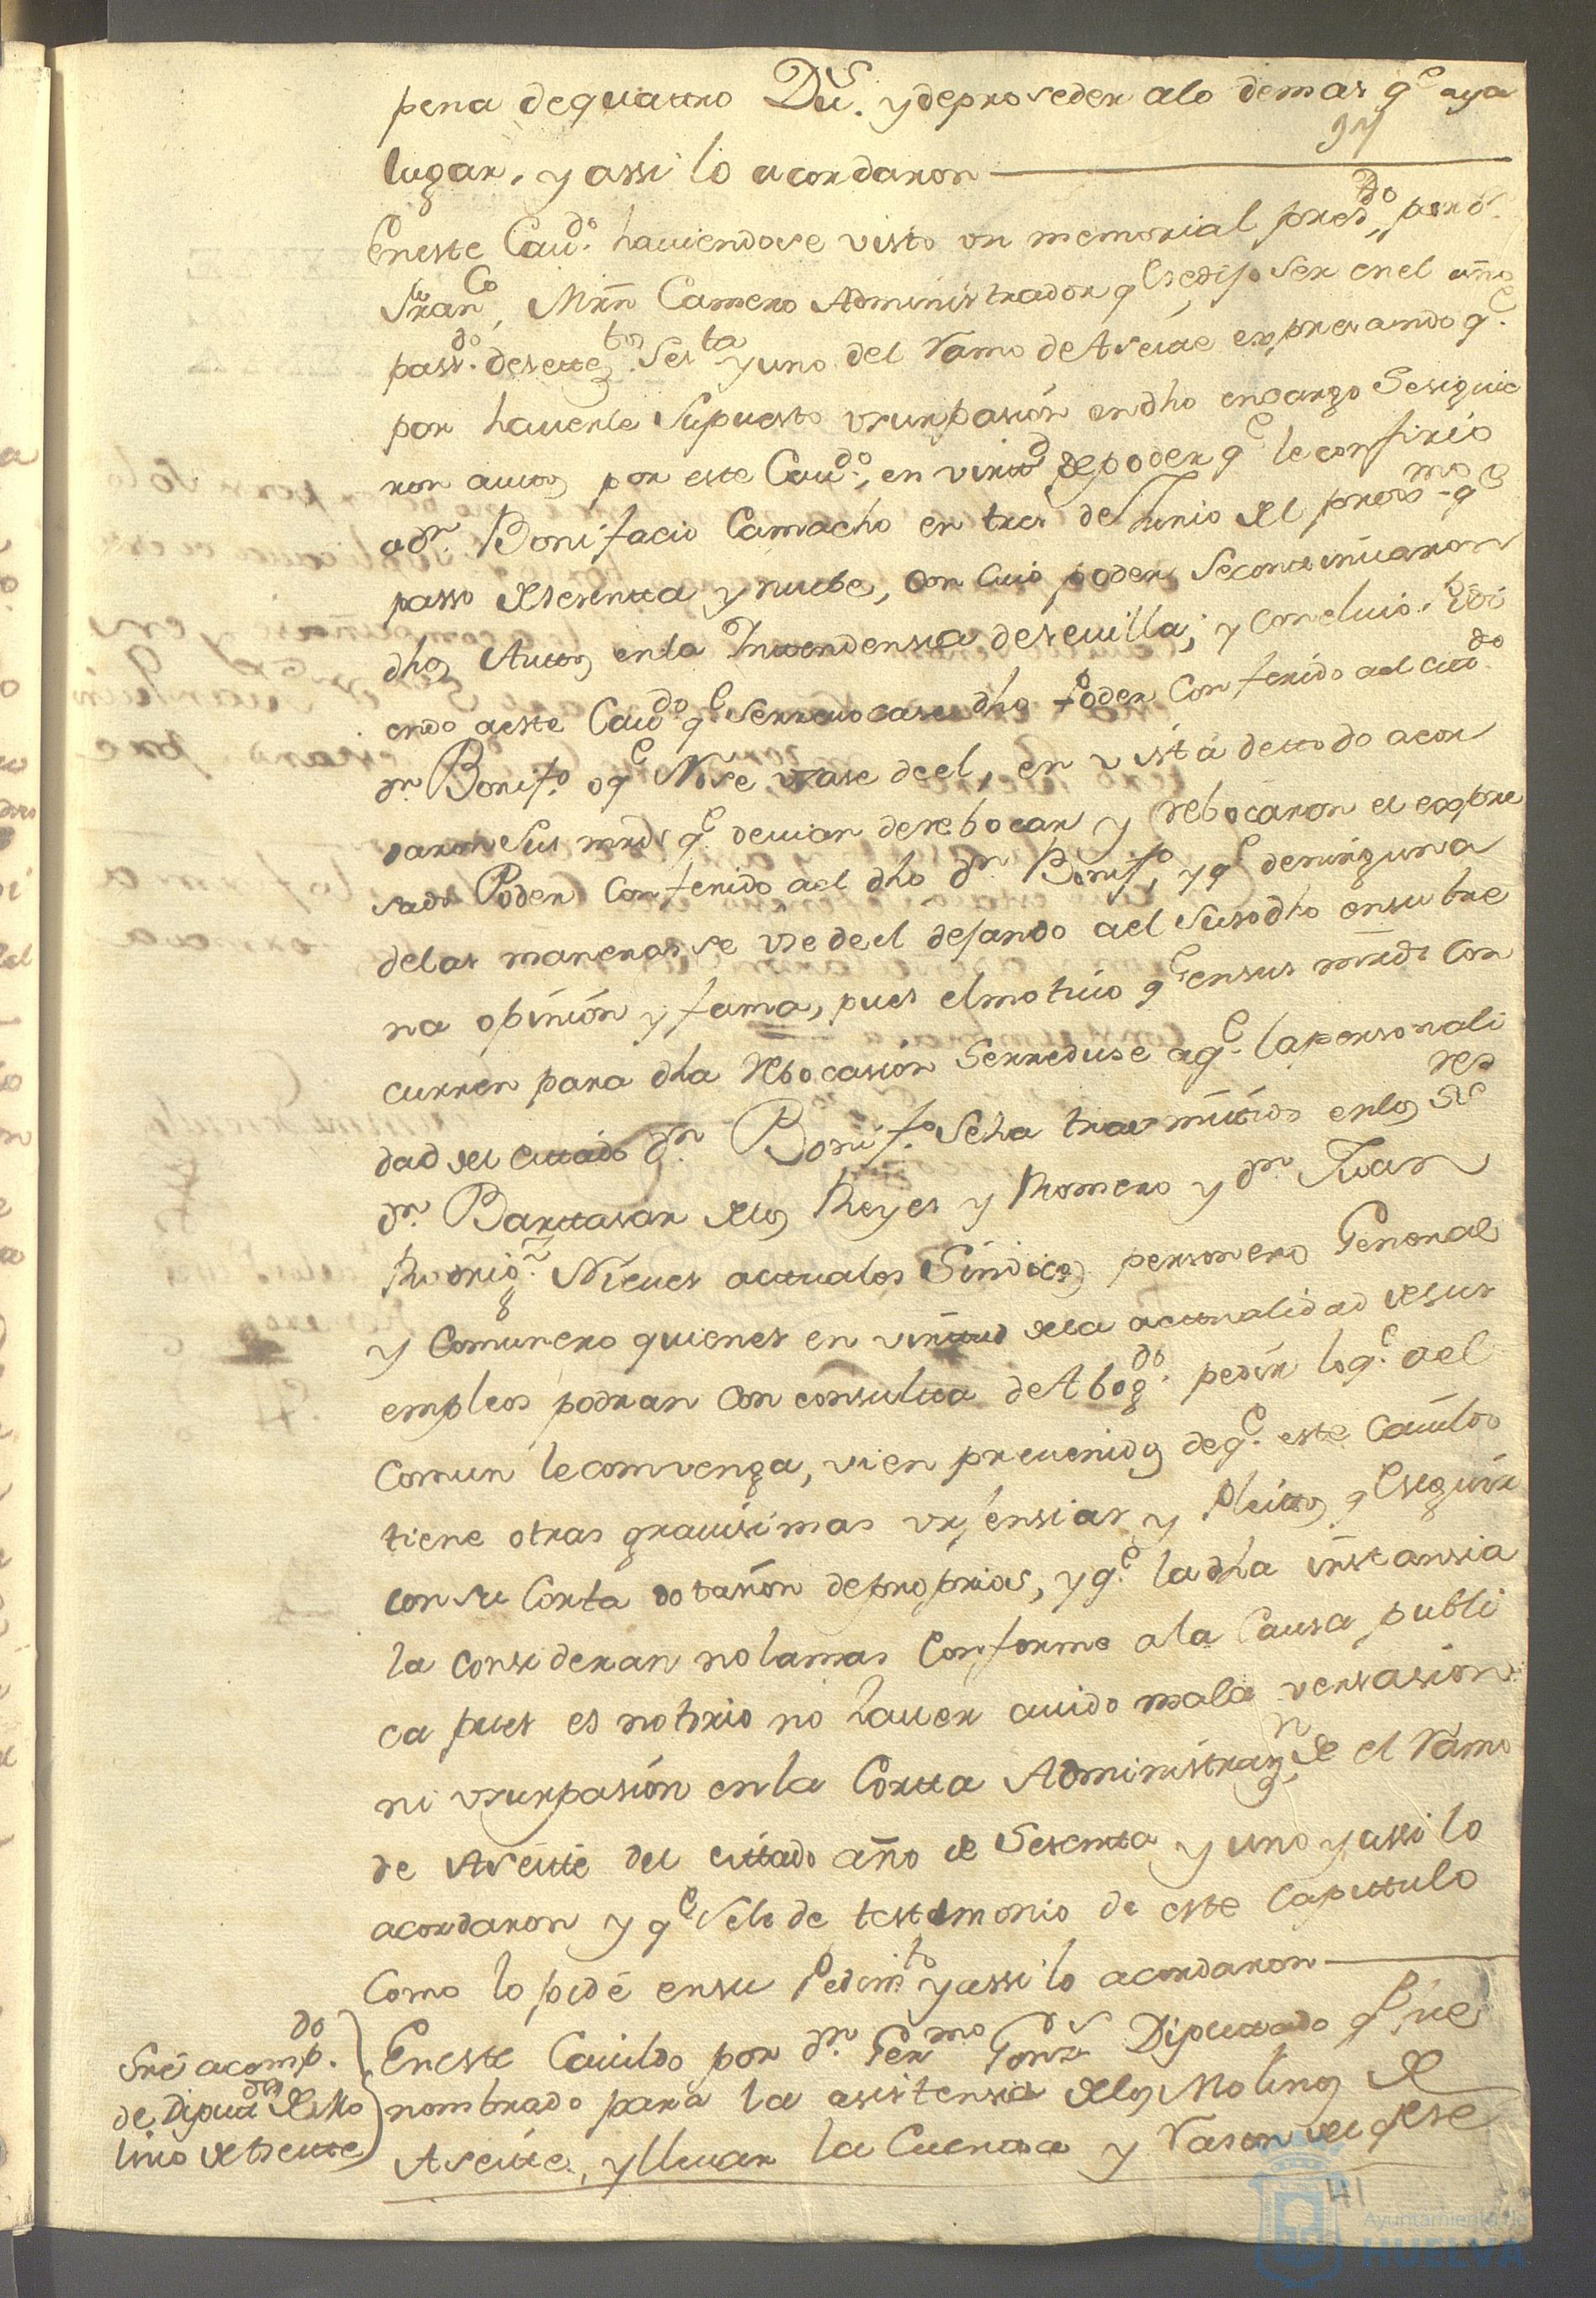 pena de quattro Dus. y de proseder a lo demas qe aya
lugar. y assi lo acordaron
En este Cavdo. haviendose visto un memorial presdo. por dn.
Franco. Mrn Camero Administrador qe se dijo ser en el año
passdo. de settetos. sesta y uno del Ramo de Aseite expresando qe.
por haverle supuesto usurpasión en dho encargo se siguie
ron autos por este Cavdo. en virtd. de poder qe le confirio
a dn. Bonifacio Camacho en tres de Junio del proxmo. qe
passo de sesentta y nuebe, con cuio poder se continuaron
dhos Autos en la Inttendensia de sevilla; y concluio. Pidi
endo a este Cavdo qe se rrevocase dho Poder conferido a el cittdo.
dn. Bonifo. o qe No se usase de el, en vista de ttodo acor
daron sus mrds qe devian de rebocar y Rebocaron el expre
sado Poder conferido a el dho dn. Bonifo, y qe de ninguna
de las maneras se use de el dejando a el susodho en su bue
na opinión y fama, pues el motivo qe en sus mrds con
curren para dha Rebocasión se rreduse a qe. la personali
dad del cittado dn. Bonifo. se ha trasmitido en los Sres
dn. Barttasar de los Reyes y Romero y dn. Juan
Rodrigz. Nieves actuales Sindicos personero General
y Comunero quienes en virttud de la actualidad de sus
empleos podran con consultta de Abogdo. pedir lo qe. a el
comun le comvenga, vien prevenidos de qe. este Cavildo
tiene otras gravisimas urjensias y Pleittos qe seguir
con su Corta dotasion de proprios, y qe. la dha instansia
la consideran no la mas conforme a la Causa publi
ca pues es notorio no haver avido mala versasion
ni usurpasión en la Cortta Administrazn. de el Ramo
de Aseitte del cittado año de Sesentta y uno y assi lo
acordaron y qe se le de testimonio de este capittulo
Como lo pide en su Pedimto y assi lo acordaron
En este Cavildo por dn. Germo Gonzs Diputtado qe fue
nombrado para la asistensia de los Molinos de
Aseitte, y llevar la Cuentta y Rason del qe se
Sre acompdo.
de Diputtdos de Mo
lino de Aseitte
41
Ayuntamiento de
HUELVA